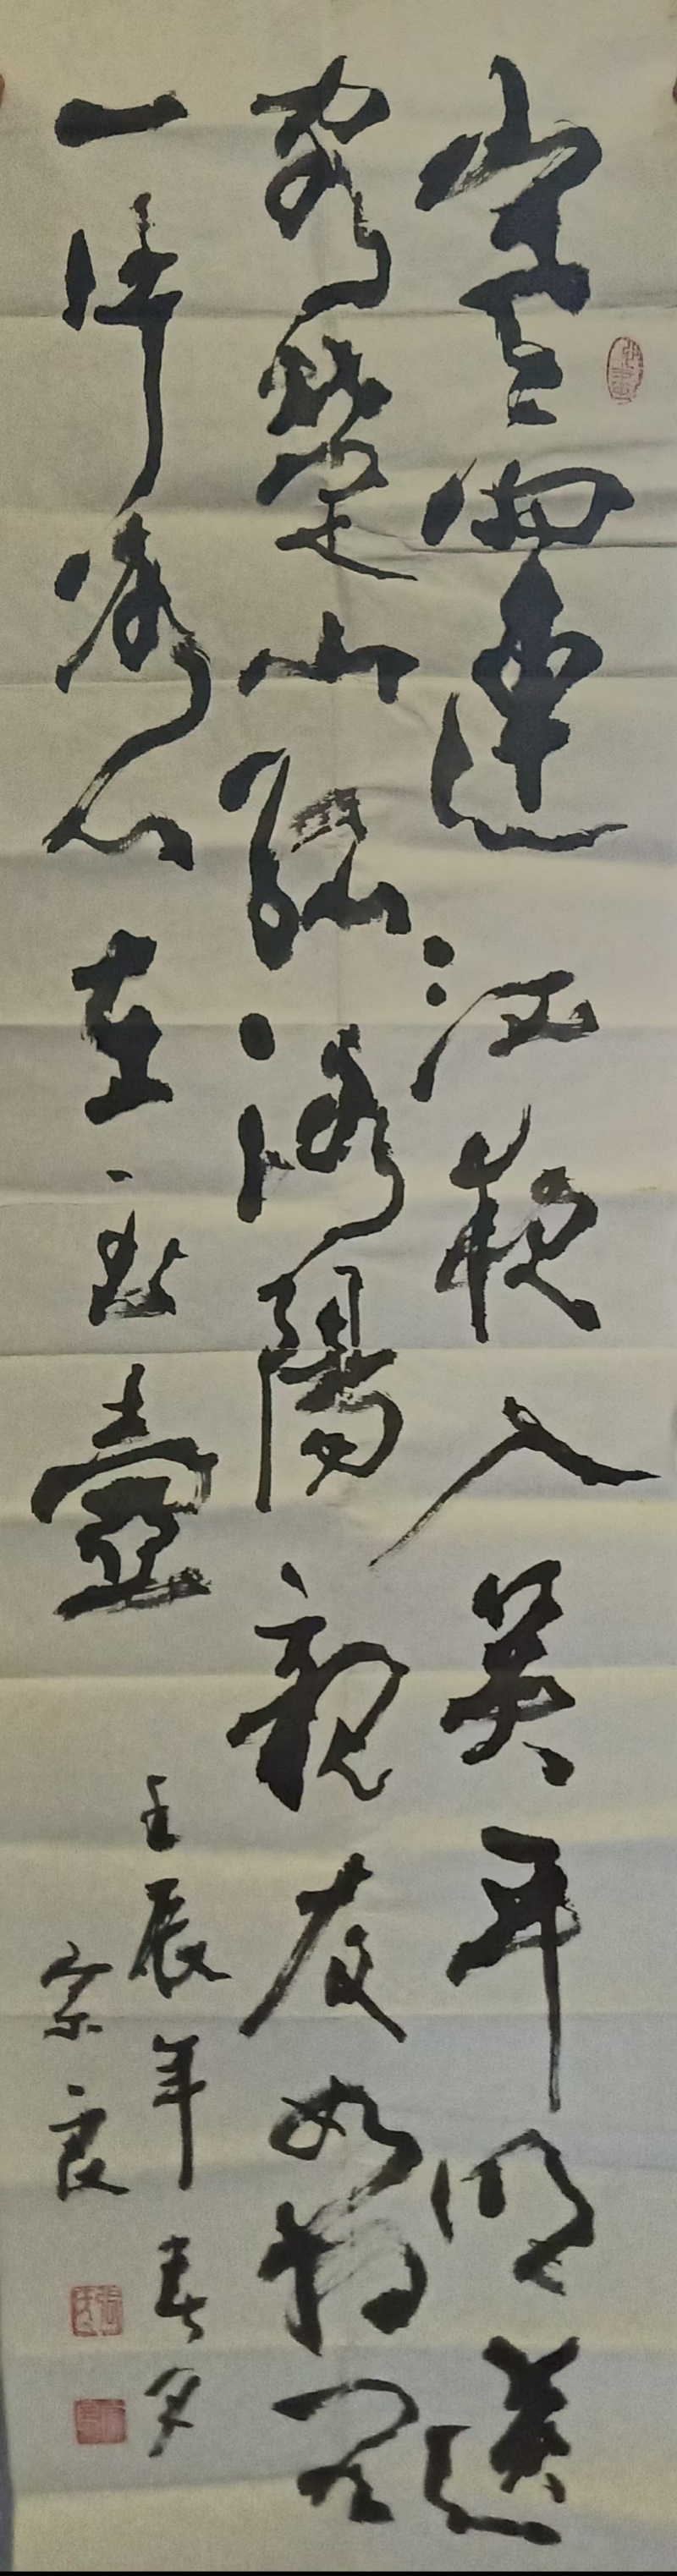 寒雨連江夜入吳平明送
客楚山孤洛陽親友如相問
一片冰心在玉壺
壬辰年春
宗良